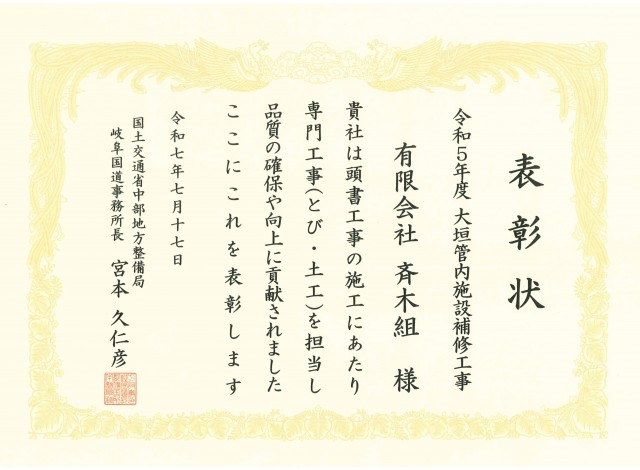 表彰状
令和5年度 大垣管内施設補修工事
有限会社 斉木組 様
貴社は頭書工事の施工にあたり
専門工事(とび・土工)を担当し
品質の確保や向上に貢献されました
ここにこれを表彰します
令和七年七月十七日
国土交通省中部地方整備局
岐阜国道事務所長 宮本 久仁彦